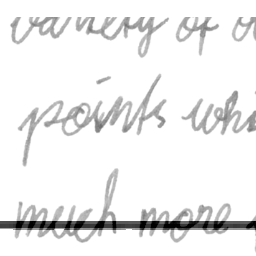 variety of
points whi
much more